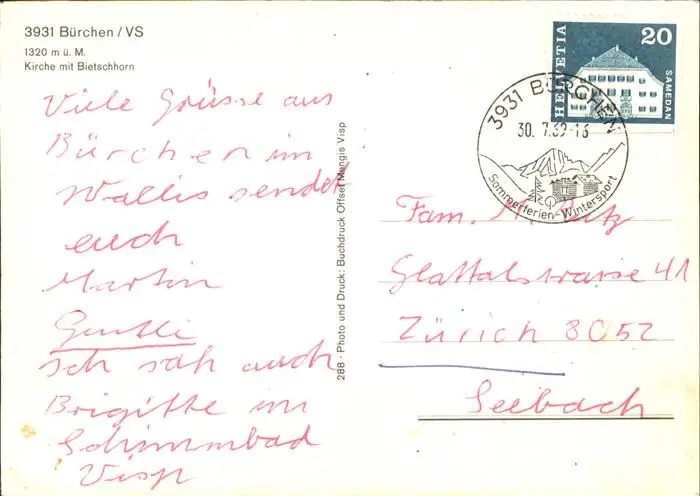 3931 Bürchen / VS
1320 m ü. M.
Kirche mit Bietschhorn
Viele Grüsse aus
Bürchen im
Wallis sendet
euch
Martin
ich sah auch
Brigitte im
Schwimmbad
Visp
288 · Photo und Druck: Buchdruck Offset Mengis Visp
HELVETIA
20
SAMEDAN
3931 BÜRCHEN
30. 7.69-16
Sommerferien-Wintersport
Fam.
Glattalstrasse 41
Zürich 8052
Seebach